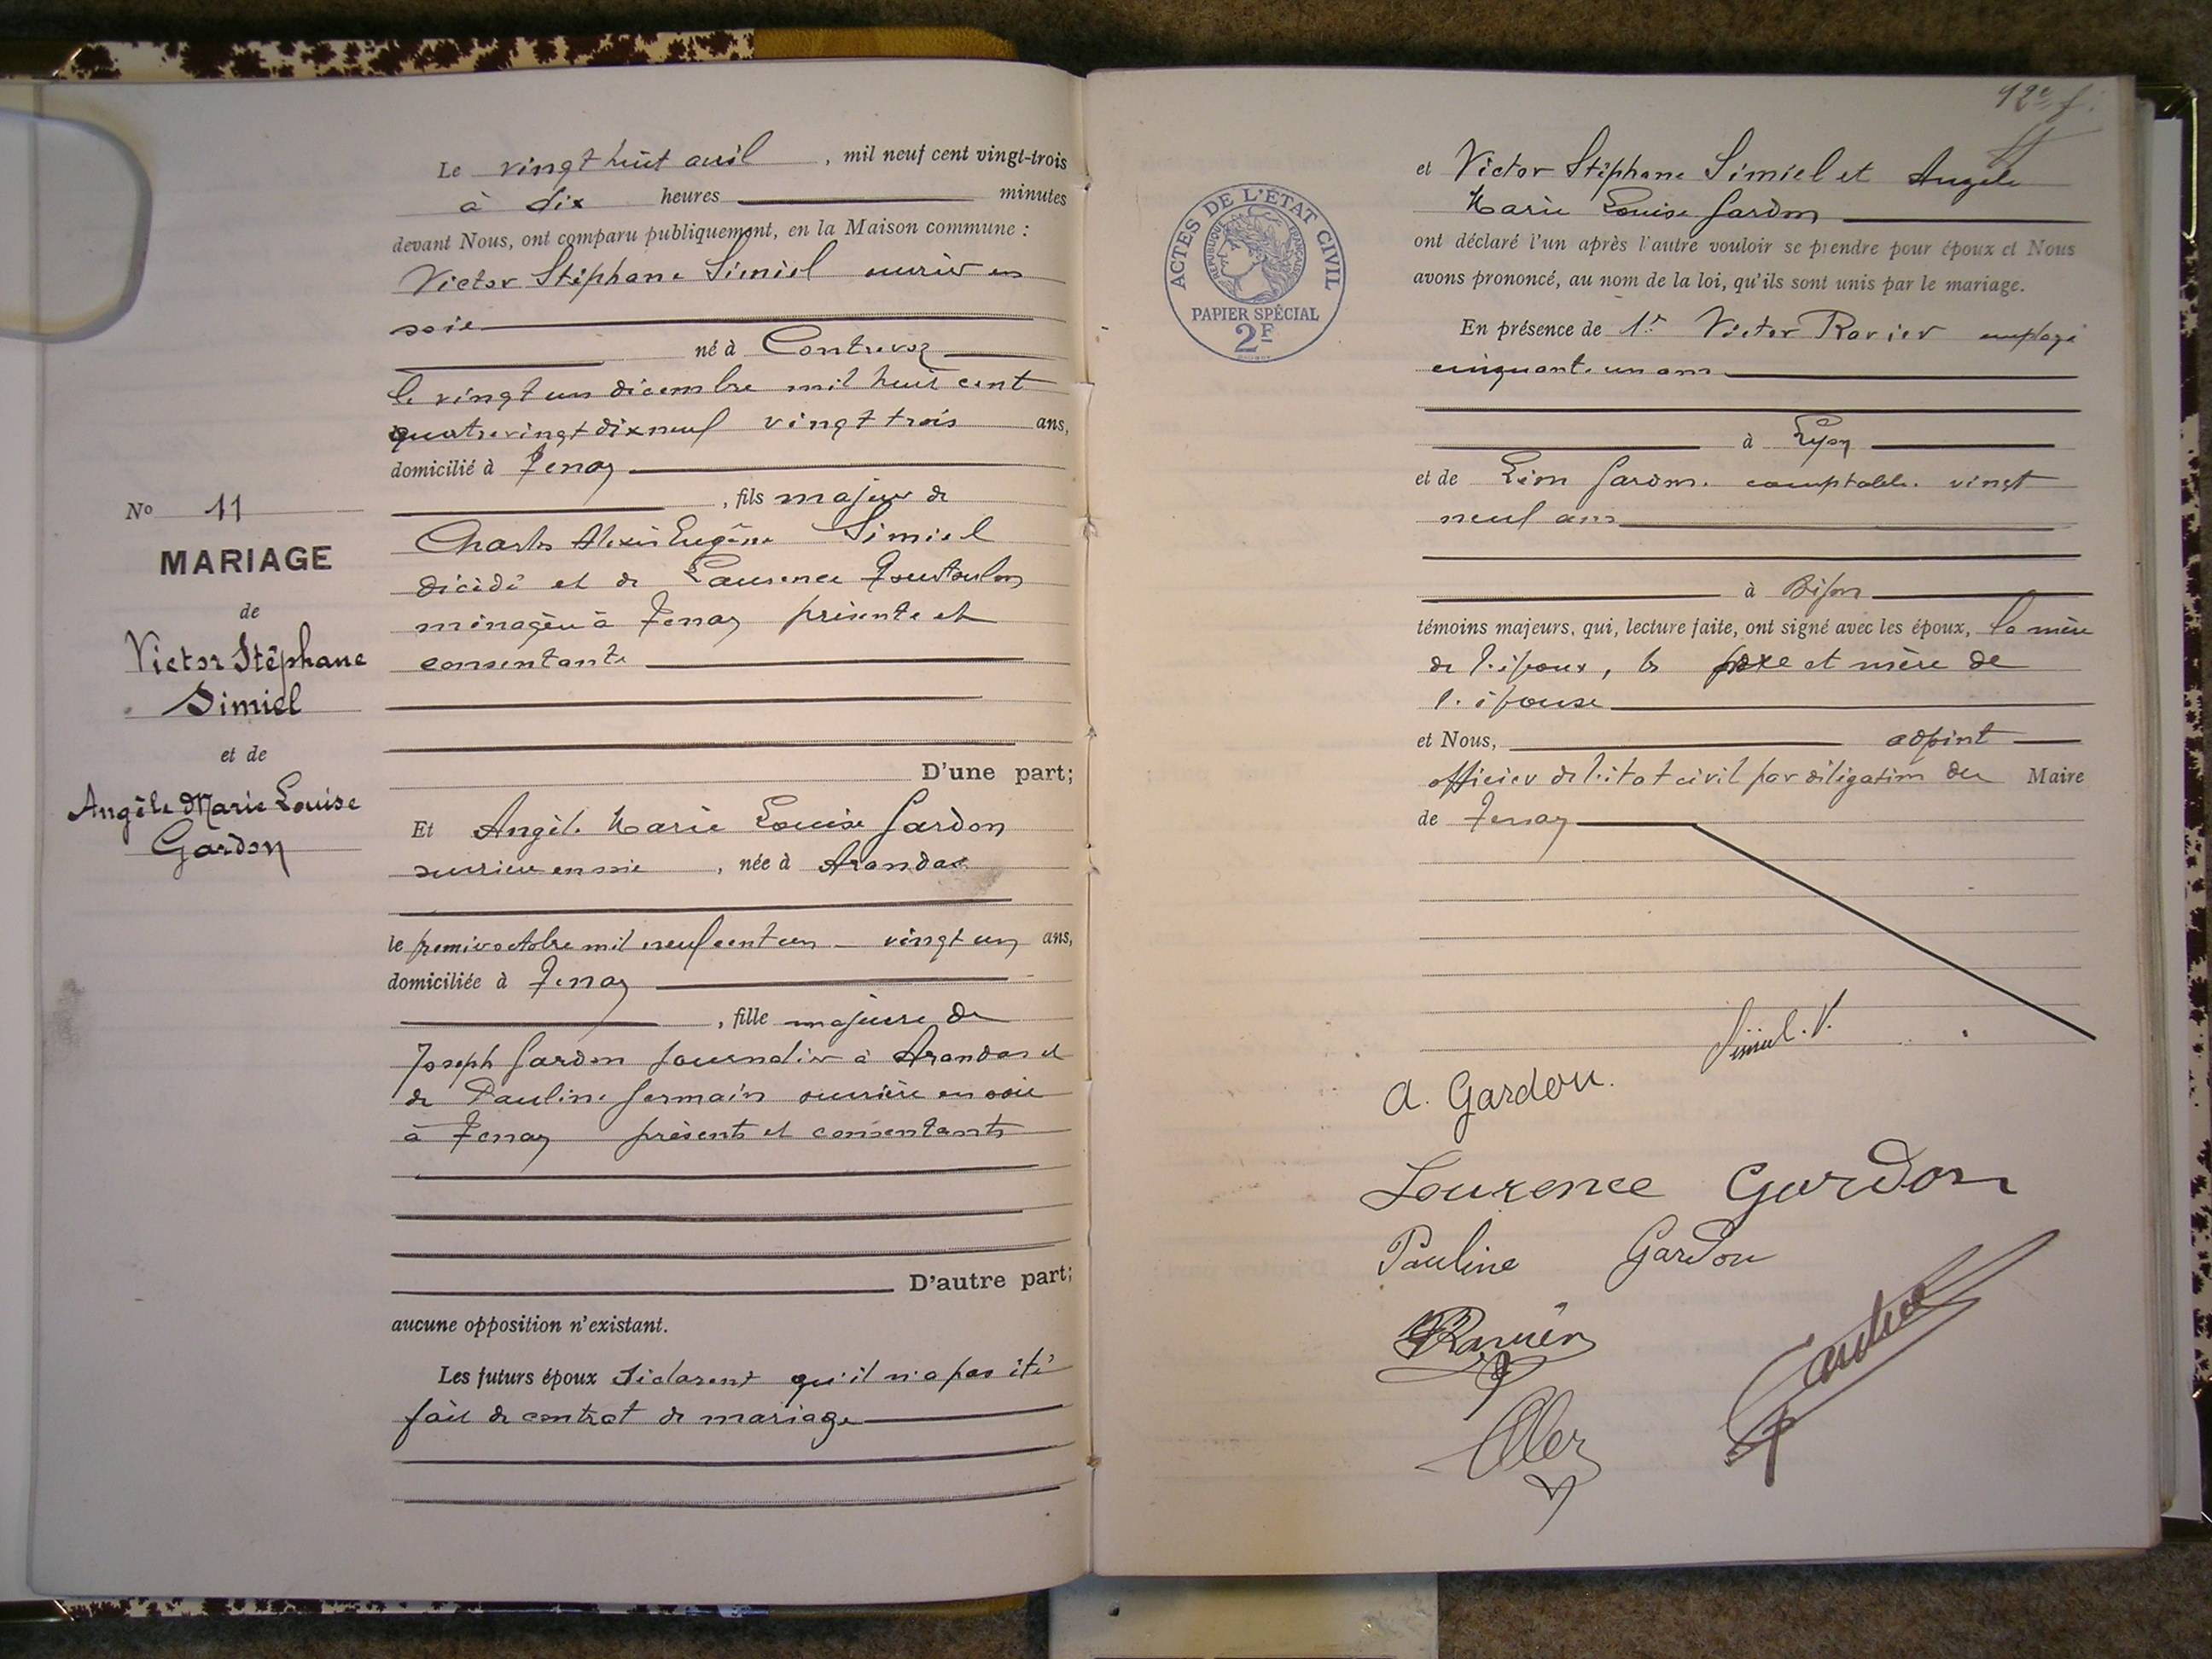 Le vingt huit avril, mil neuf cent vingt-trois
à dix heures minutes
devant Nous, ont comparu publiquement, en la Maison commune :
Victor Stéphane Simiel ouvrier en
soie
né à Contrevoz
le vingt un décembre mil huit cent
quatre vingt dix neuf vingt trois ans,
domicilié à Tenay
, fils majeur de
Charles Alexis Eugène Simiel
décédé et de Laurence
ménagère à Tenay présente et
consentante
D'une part;
No 11
MARIAGE
de
Victor Stéphane
Simiel
et de
Angèle Marie Louise
Gardon
Et Angèle Marie Louise Gardon
ouvrière en soie, née à Arandas
le premier octobre mil neuf cent un vingt un ans,
domiciliée à Tenay
, fille majeure de
Joseph Gardon journalier à Arandas et
de Pauline Germain ouvrière en soie
à Tenay présents et consentants
D'autre part;
aucune opposition n'existant.
Les futurs époux déclarent qu'il n'a pas été
fait de contrat de mariage
12e f.
ACTES DE L'ÉTAT CIVIL
RÉPUBLIQUE FRANÇAISE
PAPIER SPÉCIAL
2F
et Victor Stéphane Simiel et Angèle
Marie Louise Gardon
ont déclaré l'un après l'autre vouloir se prendre pour époux et Nous
avons prononcé, au nom de la loi, qu'ils sont unis par le mariage.
En présence de 1° Victor Ravier employé
cinquante un ans
à Lyon
et de Léon Gardon comptable vingt
neuf ans
à
témoins majeurs, qui, lecture faite, ont signé avec les époux, la mère
de l'époux, les père et mère de
l'épouse
et Nous, adjoint
officier de l'état civil par délégation du Maire
de Tenay
Simiel. V.
A. Gardon.
Laurence Gardon
Pauline Gardon
Ravier